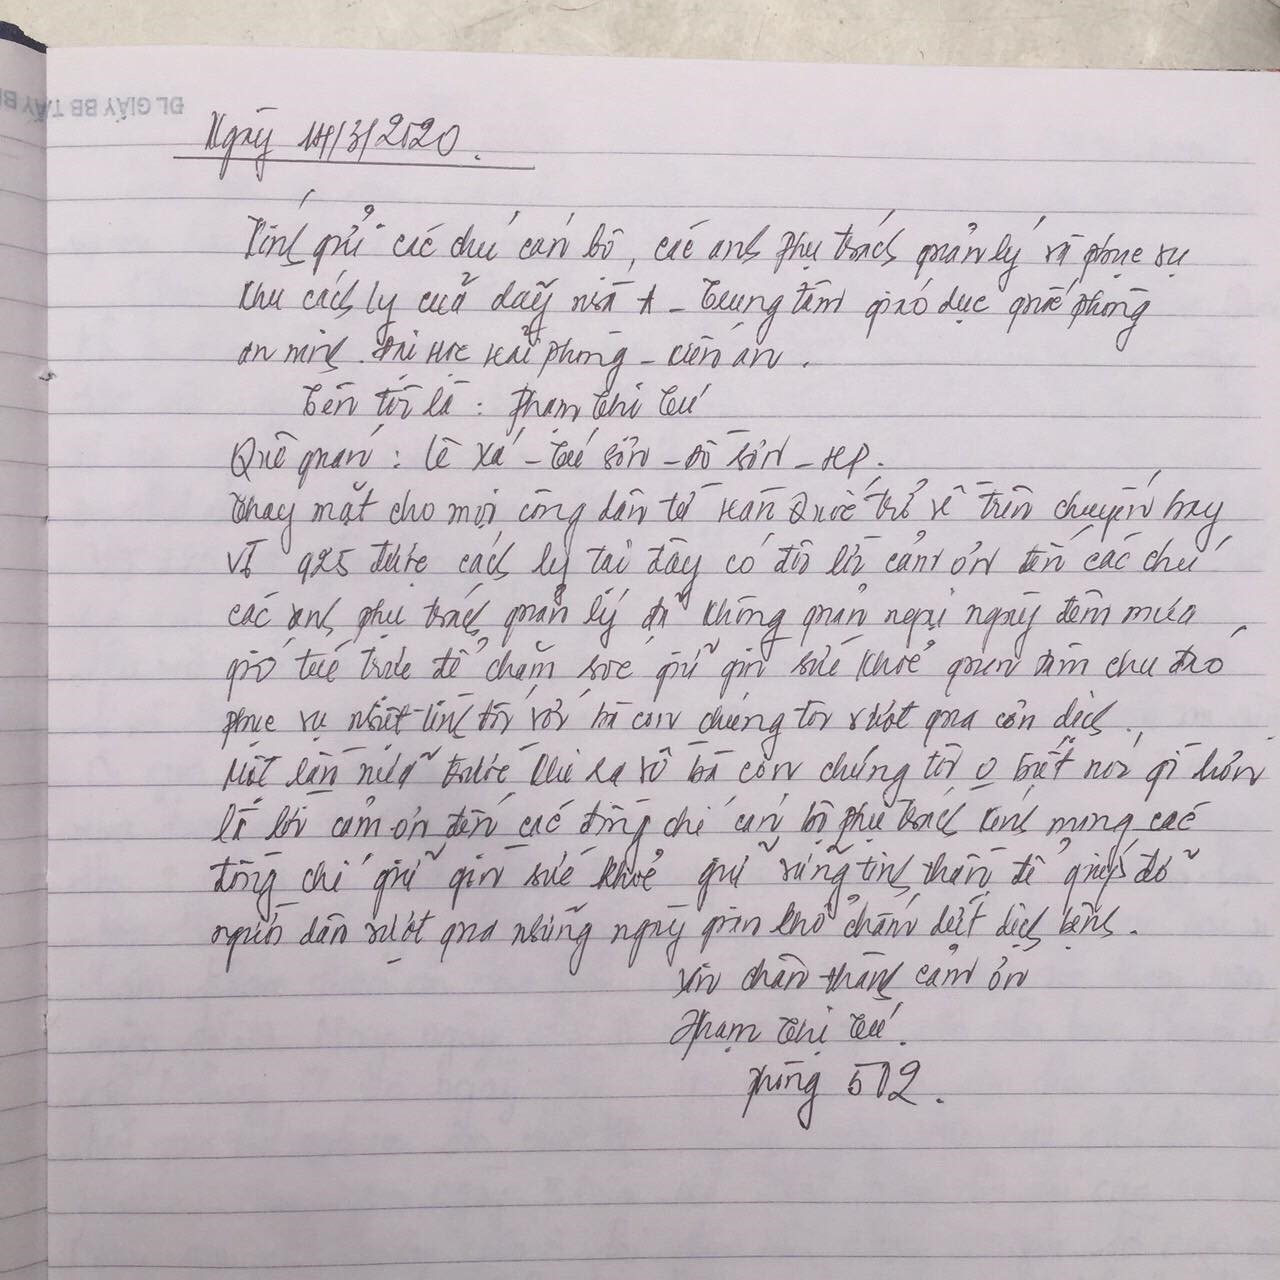 ĐL GIẤY BB TÂY B
Ngày 14/3/2020.
Kính gửi các chú cán bộ, các anh phụ trách quản lý và phục vụ
khu cách ly của dãy nhà A - Trung tâm giáo dục quốc phòng
an ninh. Đại Học Hải Phòng - Kiến An.
Tên tôi là: Phạm Thị Tú
Quê quán: Lê Xá - Tú Sơn - Đồ Sơn - HP.
Thay mặt cho mọi công dân từ Hàn Quốc trở về trên chuyến bay
VJ 925 được cách ly tại đây có đôi lời cảm ơn đến các chú
các anh phụ trách quản lý đã không quản ngại ngày đêm mưa
gió túc trực để chăm sóc giữ gìn sức khoẻ quan tâm chu đáo
phục vụ nhiệt tình đối với bà con chúng tôi vượt qua cơn dịch.
Một lần nữa trước khi ra về bà con chúng tôi o biết nói gì hơn
là lời cảm ơn đến các đồng chí cán bộ phụ trách kính mong các
đồng chí giữ gìn sức khoẻ giữ vững tinh thần để giúp đỡ
người dân vượt qua những ngày gian khổ chấm dứt dịch bệnh.
Xin chân thành cảm ơn
Phạm Thị Tú.
Phòng 512.